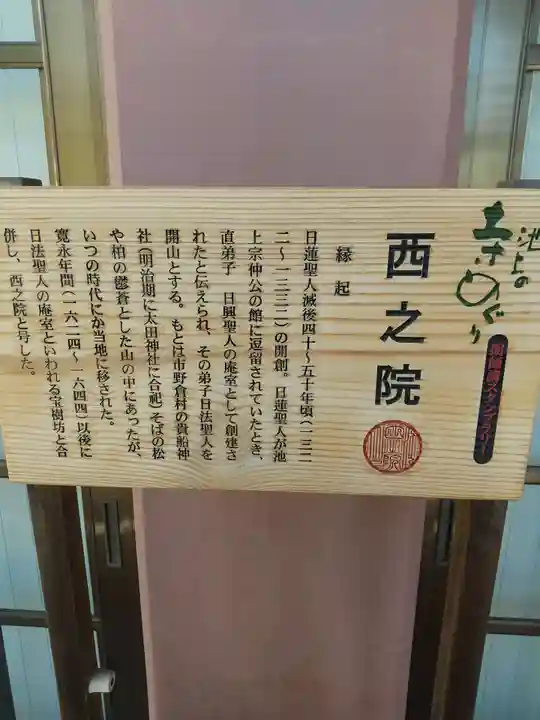 池上の
寺めぐり
御首題スタンプラリー
西之院
縁起
日蓮聖人滅後四十~五十年頃(一三二
二~一三三二)の開創。日蓮聖人が池
上宗仲公の館に逗留されていたとき、
直弟子 日興聖人の庵室として創建さ
れたと伝えられ、その弟子日法聖人を
開山とする。もとは市野倉村の貴船神
社(明治期に太田神社に合祀)そばの松
や柏の鬱蒼とした山の中にあったが、
いつの時代にか当地に移された。
寛永年間(一六二四~一六四四)以後に
日法聖人の庵室といわれる宝樹坊と合
併し、西之院と号した。